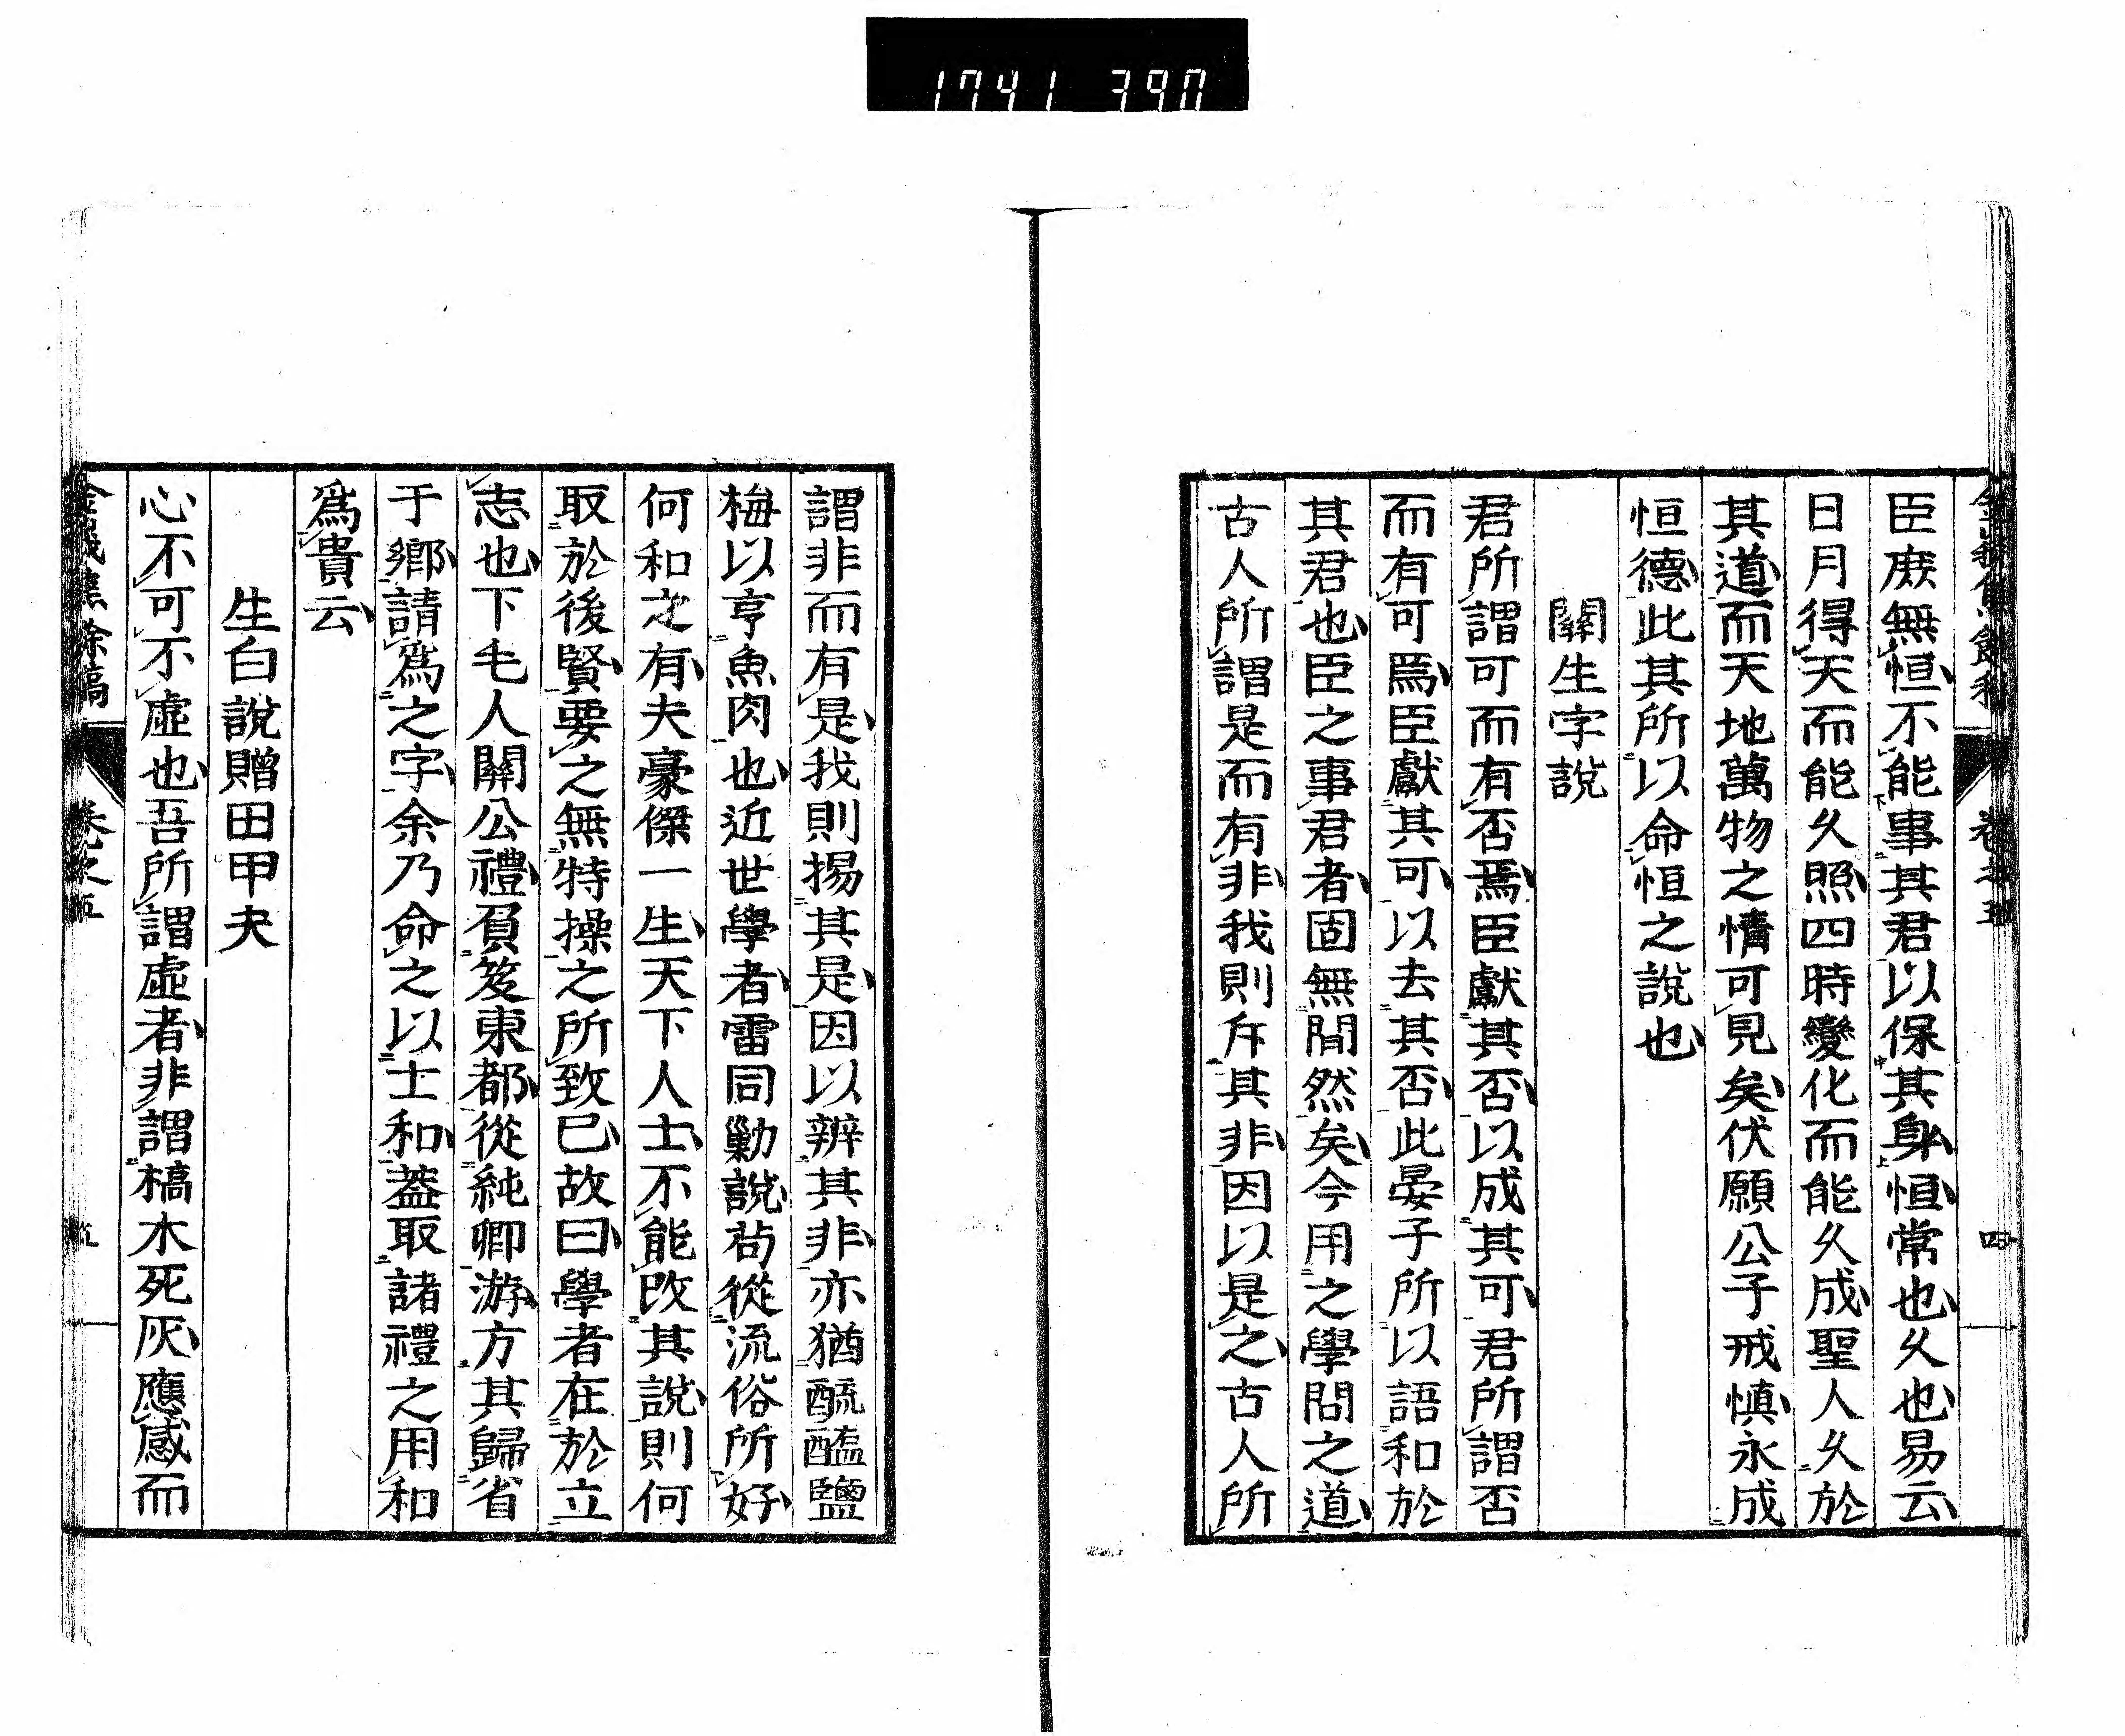 1741 390
臣庶無恒不能事其君以保其身恒常也久也易云
日月得天而能久照四時變化而能久成聖人久於
其道而天地萬物之情可見矣伏願公子戒慎永成
恒德此其所以命恒之說也
關生字說
君所謂可而有否焉臣獻其否以成其可君所謂否
而有可焉臣獻其可以去其否此晏子所以語和於
其君也臣之事君者固無間然矣今用之學問之道
古人所謂是而有非我則斥其非因以是之古人所
謂非而有是我則揚其是因以辨其非亦猶醯醢鹽
梅以亨魚肉也近世學者雷同勦說苟從流俗所好
何和之有夫豪傑一生天下人士不能改其說則何
取於後賢要之無特操之所致已故曰學者在於立
志也下毛人關公禮負笈東都從純卿游方其歸省
于鄉請爲之字余乃命之以士和蓋取諸禮之用和
爲貴云
生白說贈田甲夫
心不可不虛也吾所謂虛者非謂槁木死灰應感而
卷之五